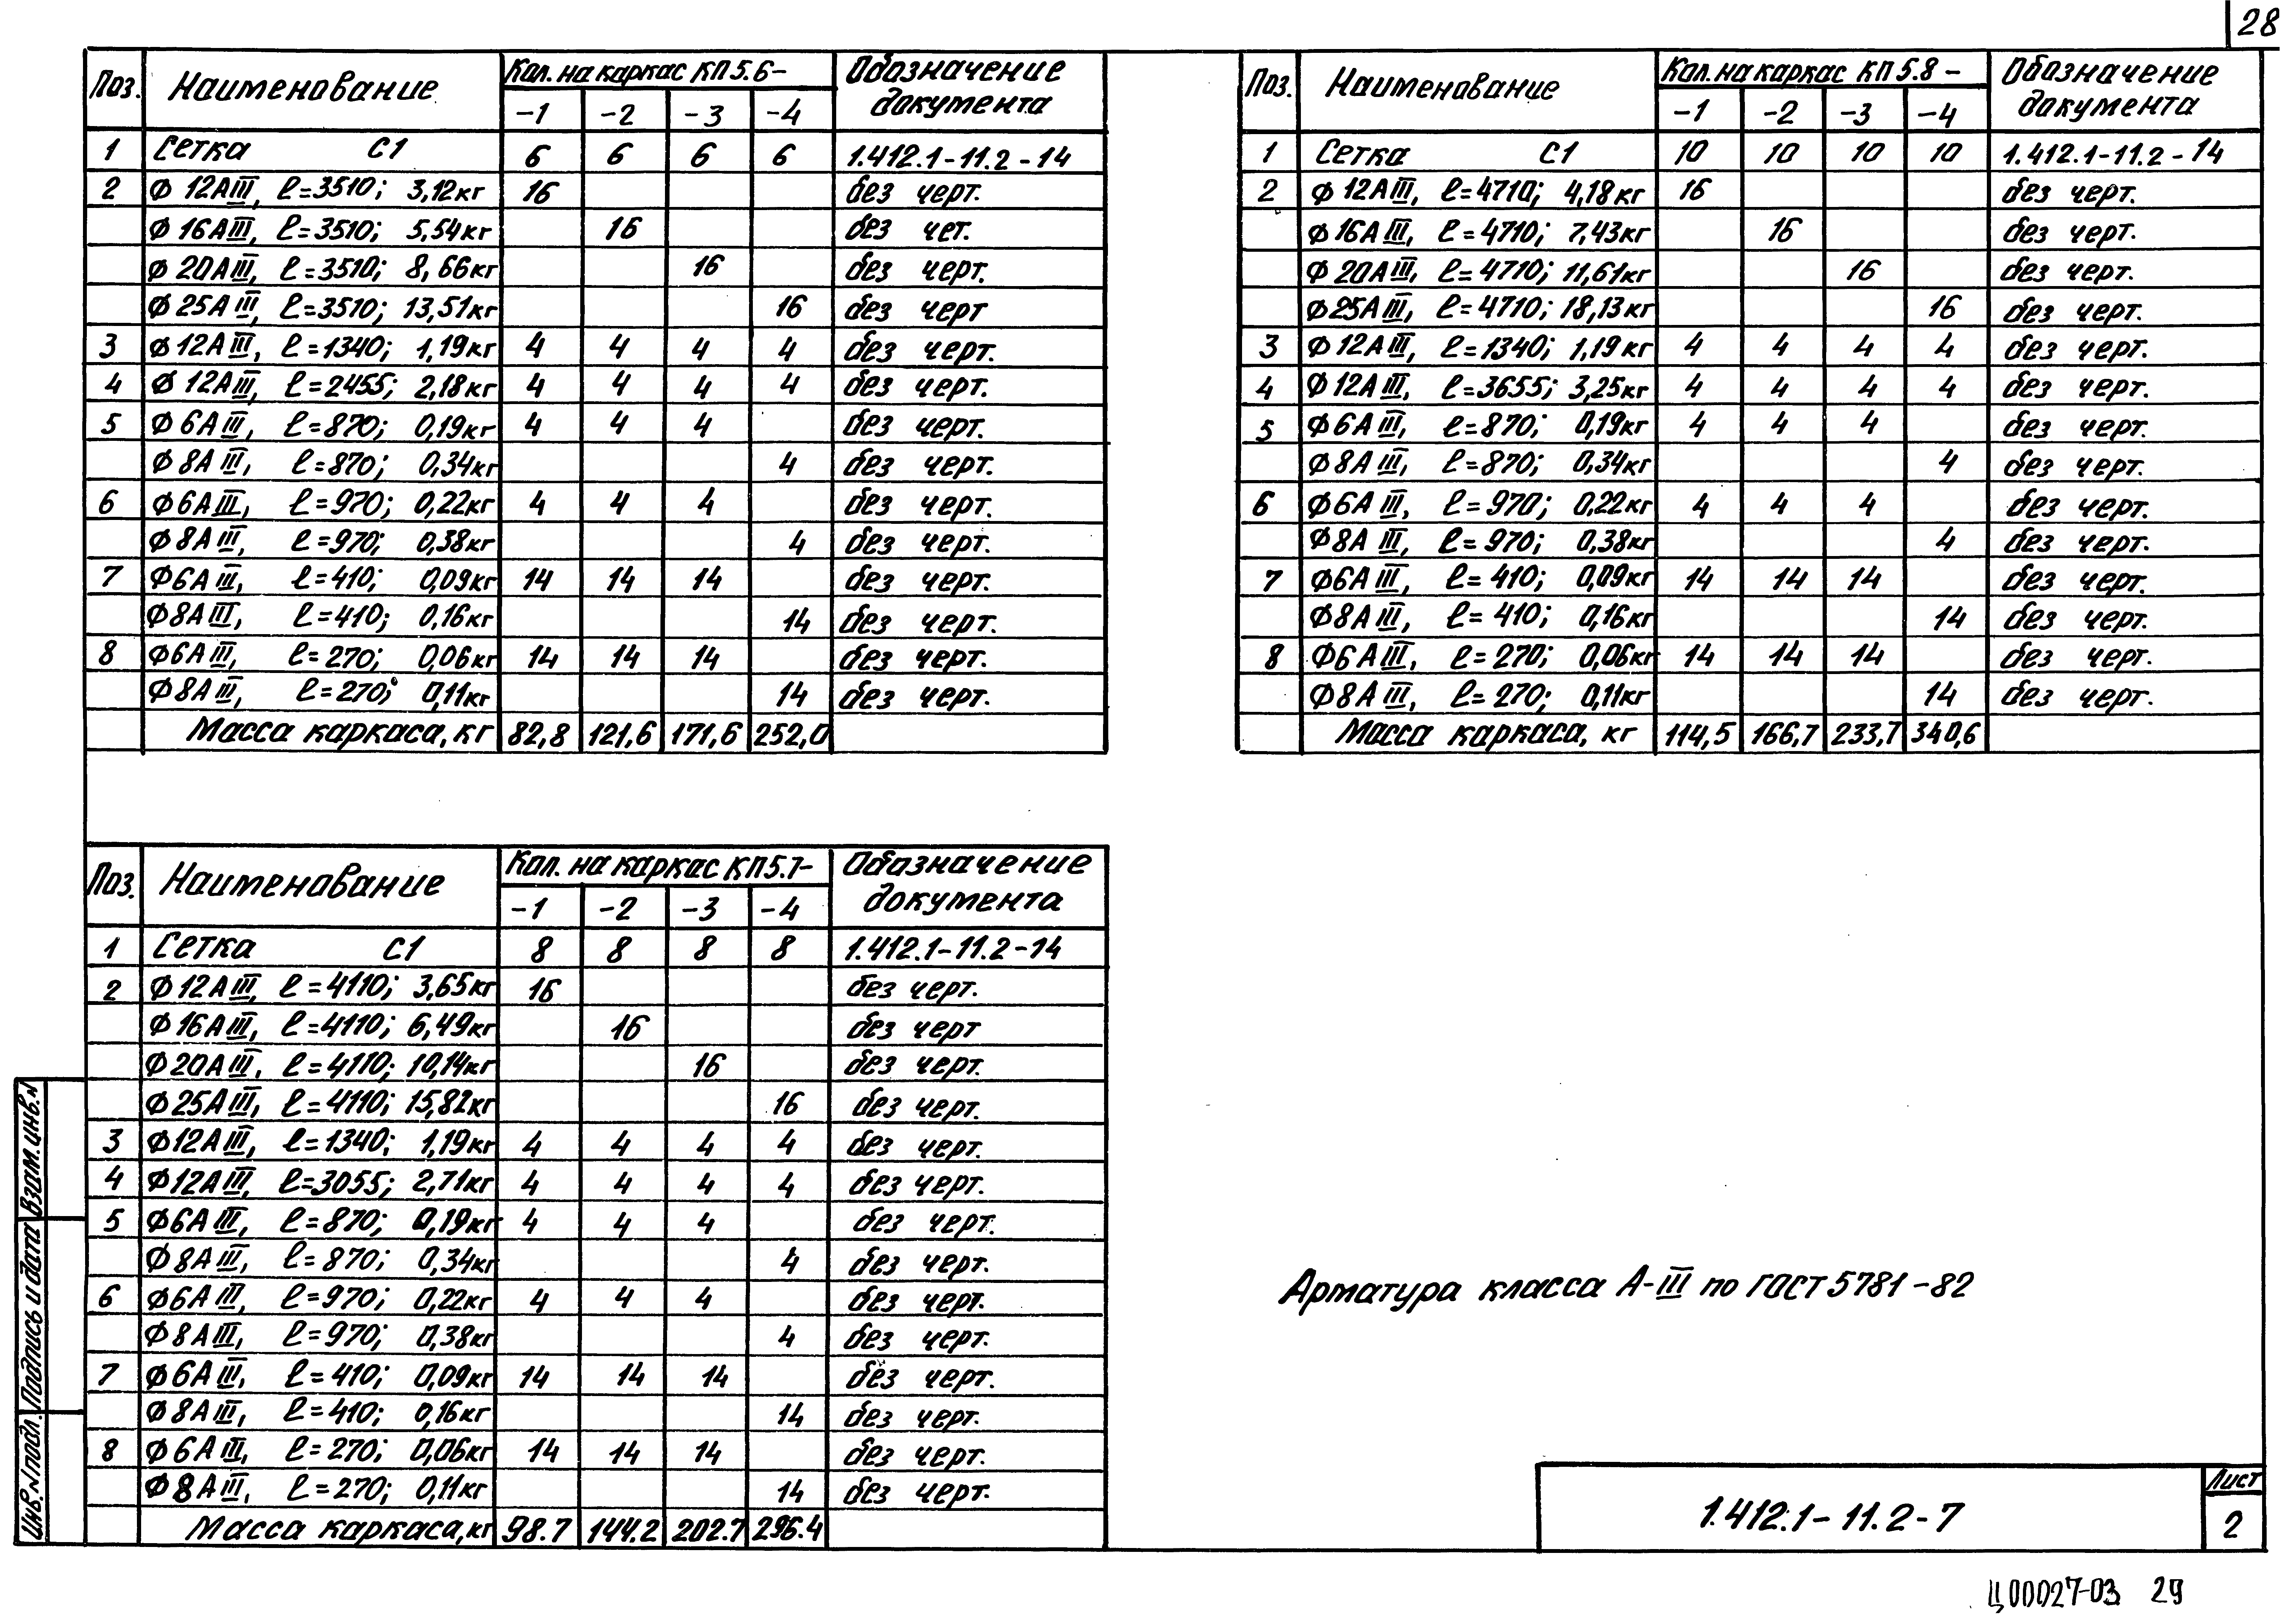 28
Поз. Наименование Кол. на каркас КП 5.6– Обозначение документа
–1 –2 –3 –4
1 Сетка С1 6 6 6 6 1.412.1-11.2-14
2 Ф 12АIII, ℓ=3510; 3,12кг 16 без черт.
Ф 16АIII, ℓ=3510; 5,54кг 16 без чет.
Ф 20АIII, ℓ=3510; 8,66кг 16 без черт.
Ф 25АIII, ℓ=3510; 13,51кг 16 без черт
3 Ф 12АIII, ℓ=1340; 1,19кг 4 4 4 4 без черт.
4 Ф 12АIII, ℓ=2455; 2,18кг 4 4 4 4 без черт.
5 Ф 6АIII, ℓ=870; 0,19кг 4 4 4 без черт.
Ф 8АIII, ℓ=870; 0,34кг 4 без черт.
6 Ф 6АIII, ℓ=970; 0,22кг 4 4 4 без черт.
Ф 8АIII, ℓ=970; 0,38кг 4 без черт.
7 Ф6АIII, ℓ=410; 0,09кг 14 14 14 без черт.
Ф8АIII, ℓ=410; 0,16кг 14 без черт.
8 Ф6АIII, ℓ=270; 0,06кг 14 14 14 без черт.
Ф8АIII, ℓ=270; 0,11кг 14 без черт.
Масса каркаса, кг 82,8 121,6 171,6 252,0
Поз. Наименование Кол. на каркас КП 5.8– Обозначение документа
–1 –2 –3 –4
1 Сетка С1 10 10 10 10 1.412.1-11.2-14
2 Ф 12АIII, ℓ=4710; 4,18кг 16 без черт.
Ф 16АIII, ℓ=4710; 7,43кг 16 без черт.
Ф 20АIII, ℓ=4710; 11,61кг 16 без черт.
Ф25АIII, ℓ=4710; 18,13кг 16 без черт.
3 Ф 12АIII, ℓ=1340; 1,19кг 4 4 4 4 без черт.
4 Ф 12АIII, ℓ=3655; 3,25кг 4 4 4 4 без черт.
5 Ф6АIII, ℓ=870; 0,19кг 4 4 4 без черт.
Ф8АIII, ℓ=870; 0,34кг 4 без черт.
6 Ф6АIII, ℓ=970; 0,22кг 4 4 4 без черт.
Ф8АIII, ℓ=970; 0,38кг 4 без черт.
7 Ф6АIII, ℓ=410; 0,09кг 14 14 14 без черт.
Ф8АIII, ℓ=410; 0,16кг 14 без черт.
8 Ф6АIII, ℓ=270; 0,06кг 14 14 14 без черт.
Ф8АIII, ℓ=270; 0,11кг 14 без черт.
Масса каркаса, кг 114,5 166,7 233,7 340,6
Поз. Наименование Кол. на каркас КП5.7– Обозначение документа
–1 –2 –3 –4
1 Сетка С1 8 8 8 8 1.412.1-11.2-14
2 Ф 12АIII, ℓ=4110; 3,65кг 16 без черт.
Ф 16АIII, ℓ=4110; 6,49кг 16 без черт
Ф20АIII, ℓ=4110; 10,14кг 16 без черт.
Ф25АIII, ℓ=4110; 15,82кг 16 без черт.
3 Ф12АIII, ℓ=1340; 1,19кг 4 4 4 4 без черт.
4 Ф12АIII, ℓ=3055; 2,71кг 4 4 4 4 без черт.
5 Ф6АIII, ℓ=870; 0,19кг 4 4 4 без черт.
Ф8АIII, ℓ=870; 0,34кг 4 без черт.
6 Ф6АIII, ℓ=970; 0,22кг 4 4 4 без черт.
Ф8АIII, ℓ=970; 0,38кг 4 без черт.
7 Ф6АIII, ℓ=410; 0,09кг 14 14 14 без черт.
Ф8АIII, ℓ=410; 0,16кг 14 без черт.
8 Ф6АIII, ℓ=270; 0,06кг 14 14 14 без черт.
Ф8АIII, ℓ=270; 0,11кг 14 без черт.
Масса каркаса, кг 98.7 144.2 202.7 296.4
Арматура класса А-III по ГОСТ 5781-82
Инв.№подл. Подпись и дата Взам.инв.№
1.412.1-11.2-7
Лист
2
Ц00027-03 29